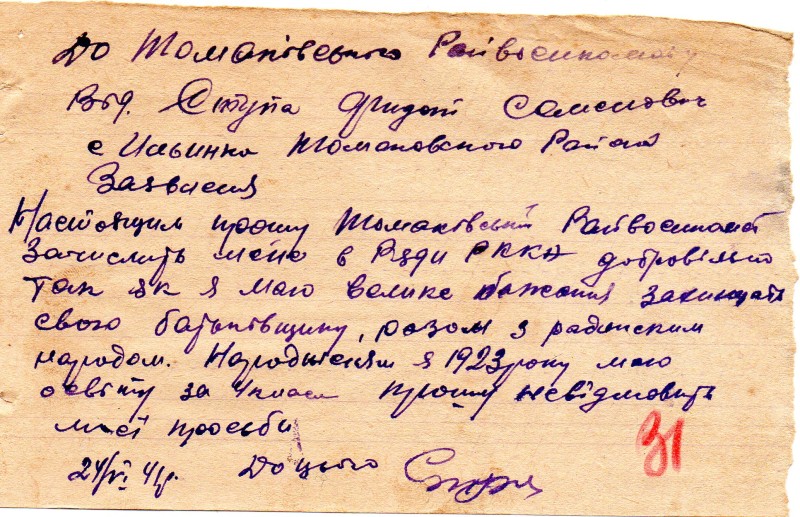 До Томаківського Райвоєнкомату
Від. Ступа Федот Семенович
с Ильинка Томаковского Района
Заявления
Настоящим прошу Томаківський Райвоєнкомат
Зачислить мене в Ряди РККА добровільно
так як я маю велике бажання захищать
свою батьківщину, разом з радянским
народом. Народження я 1923 року маю
освіту за 4 класи прошу невідмовить
моєї просьби
24/VI 41р. До цього
31